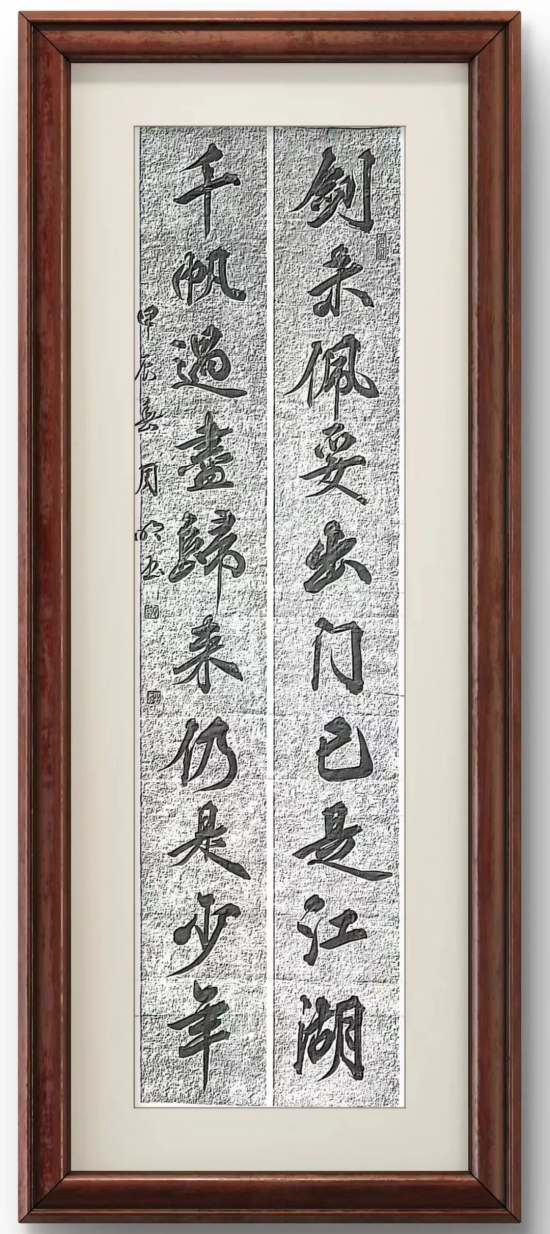 剑未佩妥出门已是江湖
千帆过盡歸来仍是少年
甲辰春月